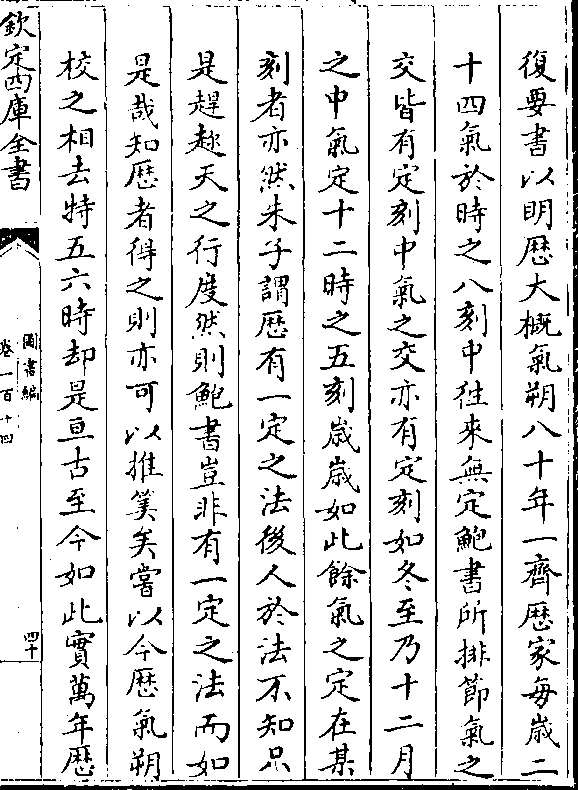 復要書以明歴大概氣朔八十年一齊歴家每歲二
十四氣於時之八刻中徃來無定鮑書所排節氣之
交皆有定刻中氣之交亦有定刻如冬至乃十二月
之中氣定十二時之五刻歲歲如此餘氣之定在某
刻者亦然朱子謂歴有一定之法後人於法不知只
是趕趂天之行度然則鮑書豈非有一定之法而如
是哉知歴者得之則亦可以推筭矣嘗以今歴氣朔
校之相去特五六時却是亘古至今如此實萬年歴
欽定四庫全書
圖書編
卷一百十四
四十